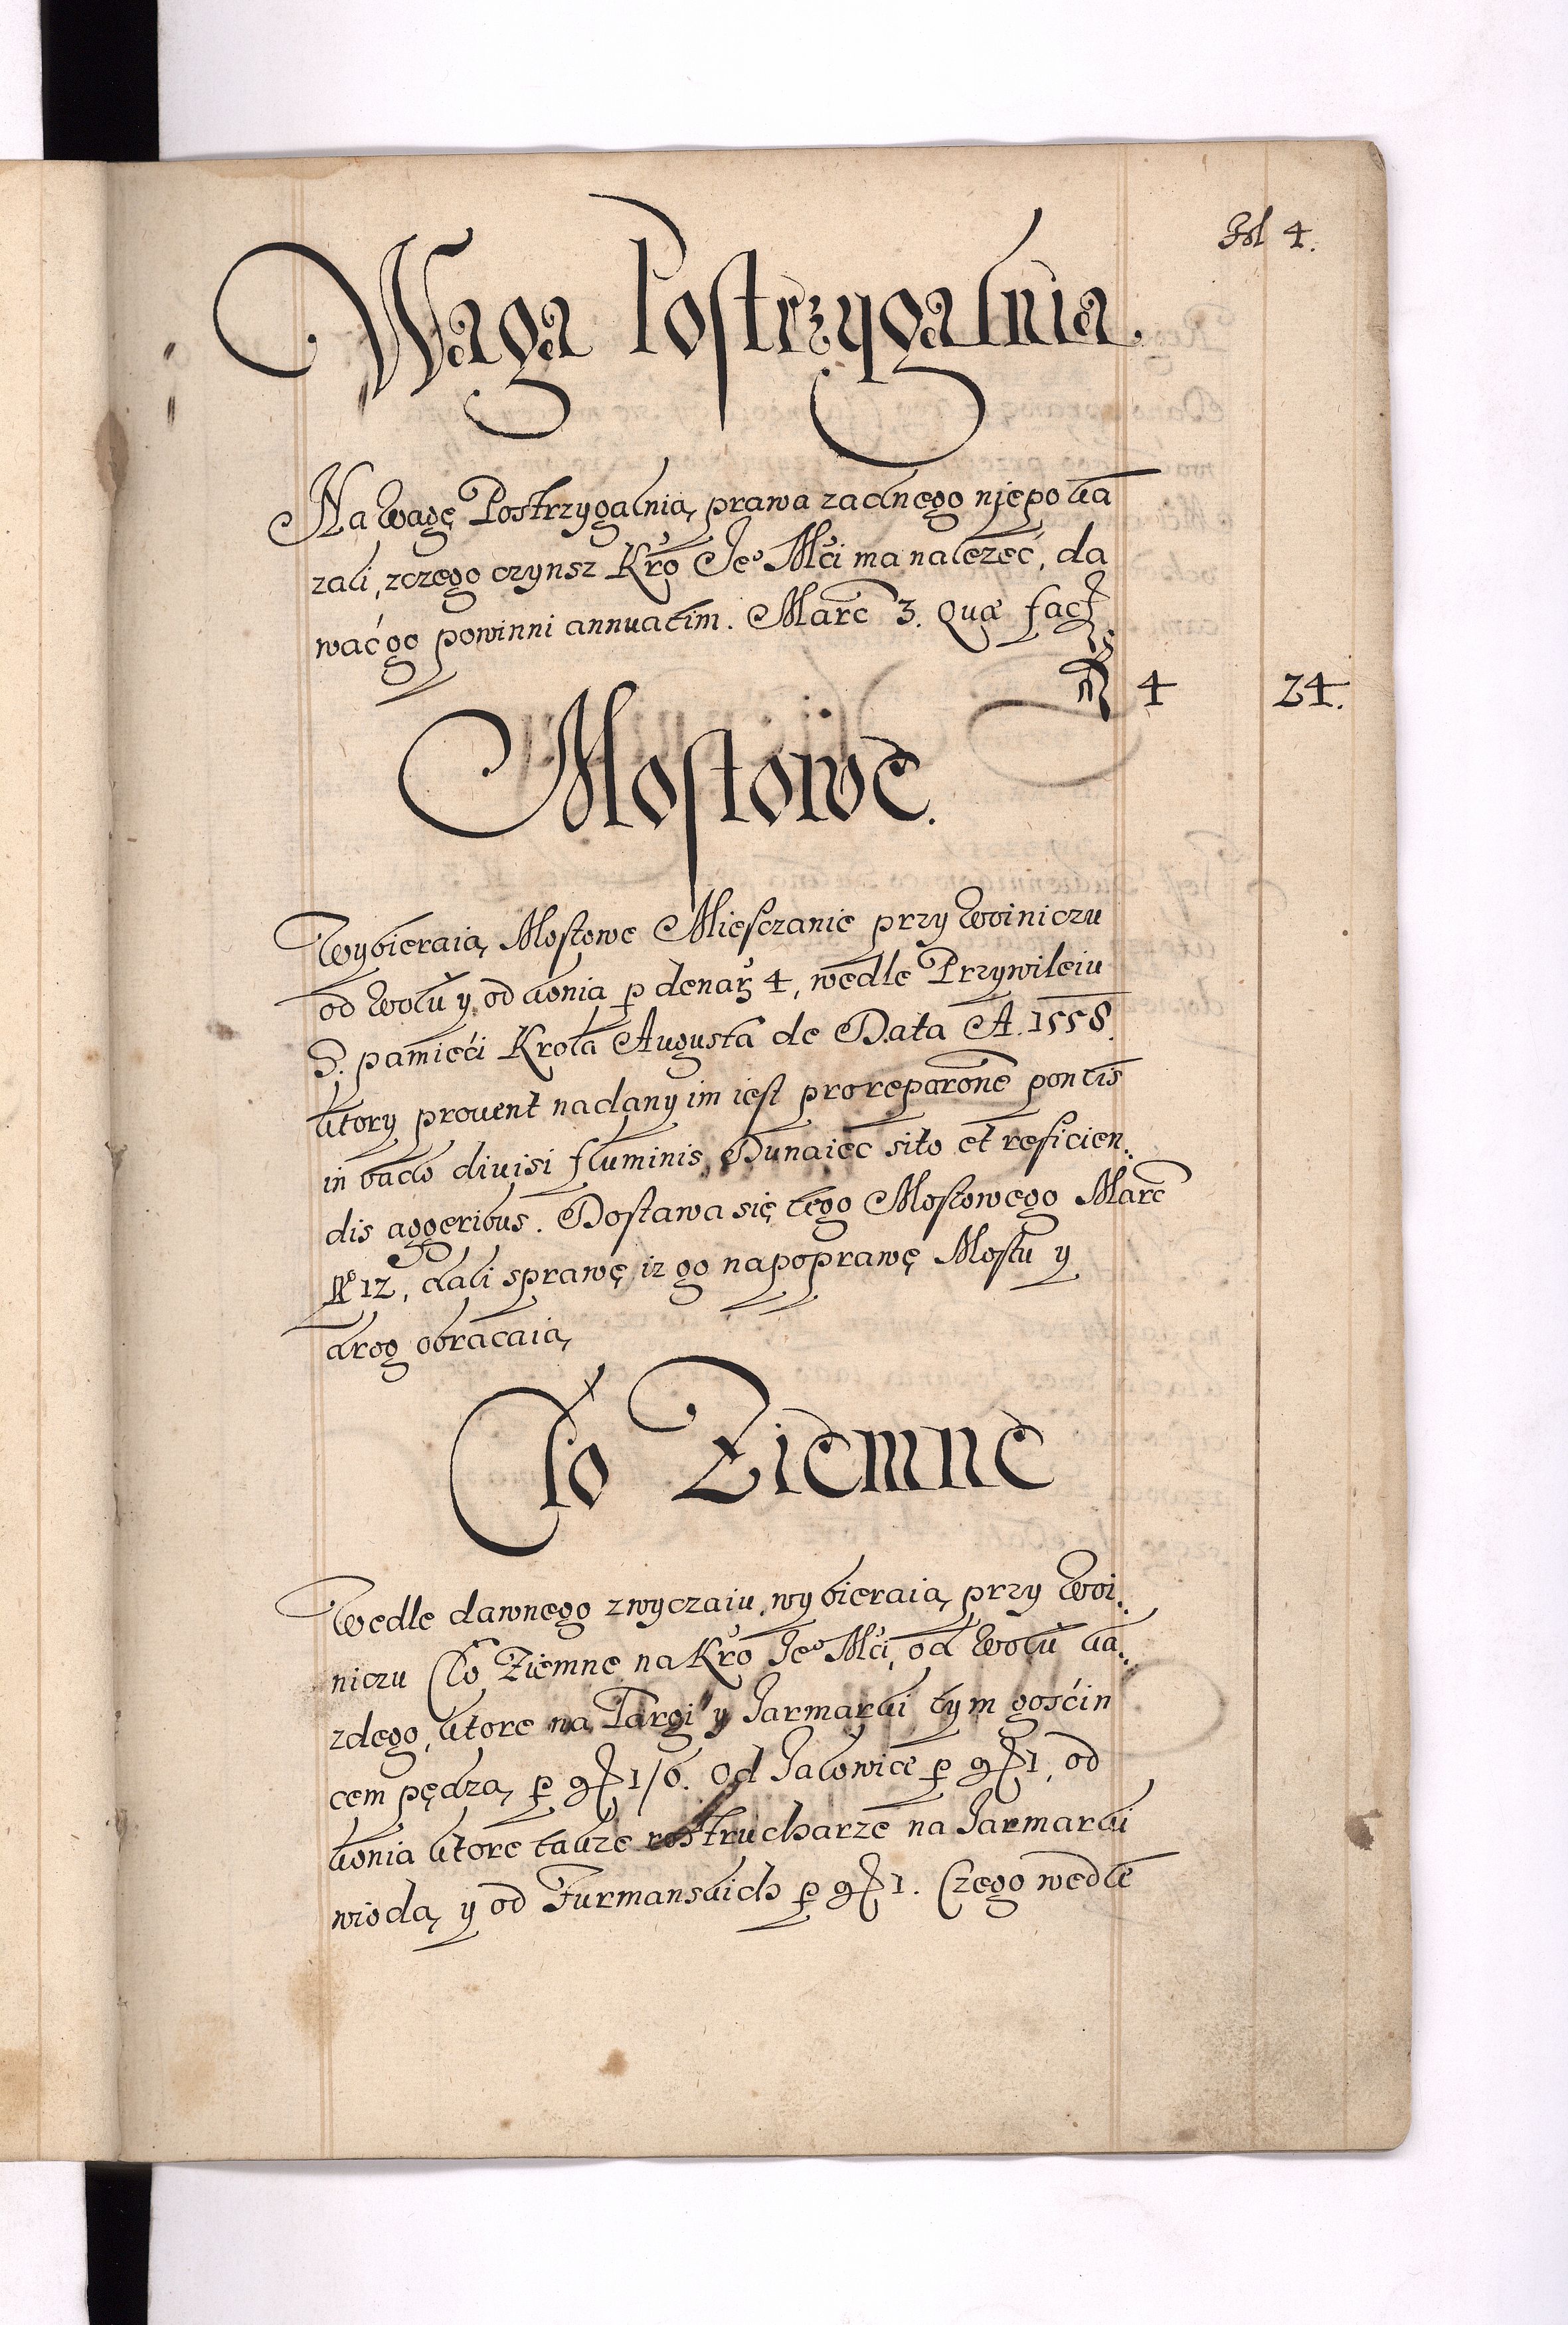 Fol 4.
Waga Postrzygalnia.
Na Wagę Postrzygalnią prawa zadnego niepoka
zali, zczego czynsz Kro Jeo Mći ma nalezeć, da
wać go powinni annuatim. Marc 3. Quæ fact
fl 4 24.
Mostowe.
Wybieraią Mostowe Miesczanie przy Woiniczu
od Wołu y od konia p denar 4, wedle Przywileiu
S. pamieći Krola Augusta de Data A. 1558.
ktory prouent nadany im iest pro reparone pontis
in vado diuisi fluminis Dunaiec sito et reficien:
dis aggeribus. Dostawa się tego Mostowego Marc
No 12, dali sprawę iz go na poprawę Mostu y
drog obracaią
Cło Ziemne
Wedle dawnego zwyczaiu wybieraią przy Woi:
niczu Cło Ziemne na Kro Jeo Mći, od Wołu ka:
zdego, ktore na Targi y Jarmarki tym gośćin
cem pędzą p gr 1/6. Od Jałowice p gr 1, od
konia ktore takze rostrucharze na Jarmarki
wiodą y od Furmanskich p gr 1. Czego wedle